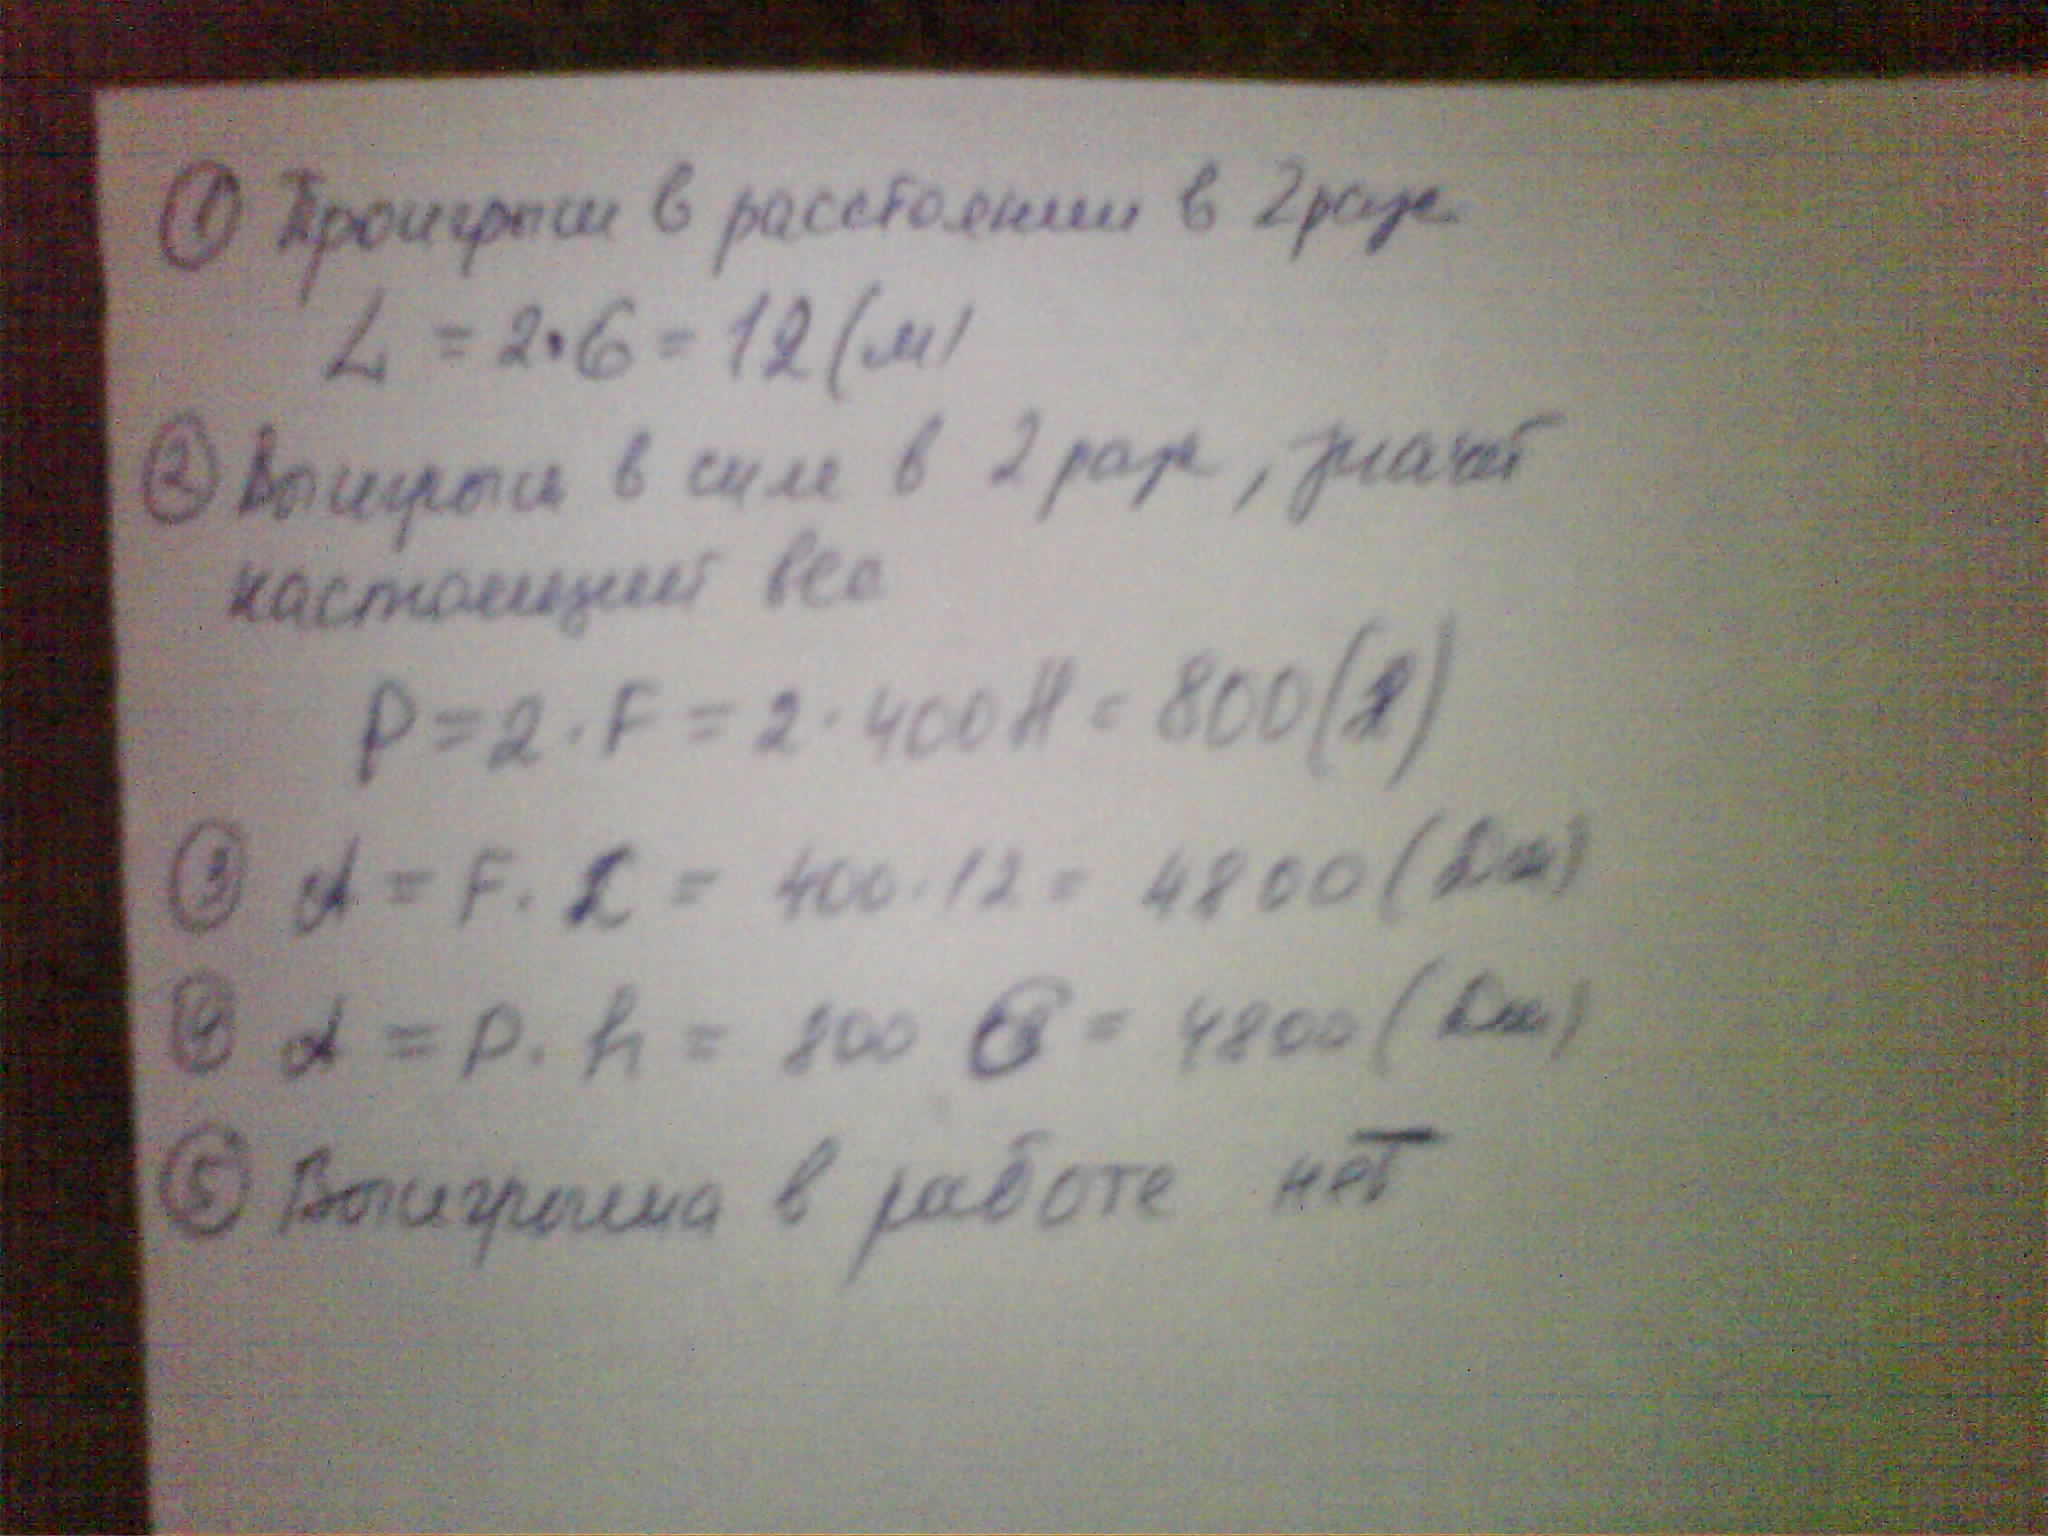 ① Проигрыш в расстоянии в 2 раза
L = 2·6 = 12 (м)
② Выигрыш в силе в 2 раза, значит
настоящий вес
P = 2·F = 2·400 Н = 800 (Н)
③ A = F·L = 400·12 = 4800 (Дж)
④ A = P·h = 800 6 = 4800 (Дж)
⑤ Выигрыша в работе нет